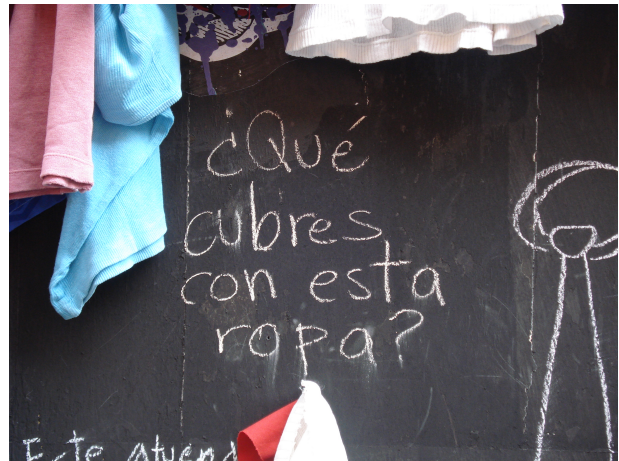 ¿Qué
cubres
con esta
ropa?
Este